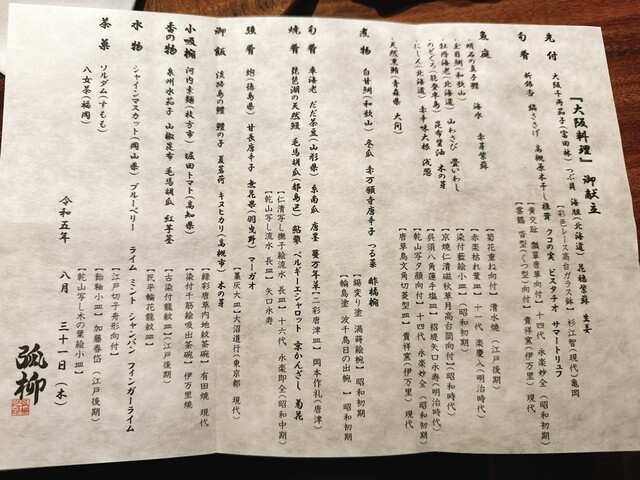 『大阪料理』 御献立
先付 大阪千両茄子(富田林) つぶ貝 海胆(北海道) 花穂紫蘇 生姜
【彩色レース高台ガラス鉢】杉江智(現代)亀岡
旬肴 新銀杏 鍋ささげ 高槻原木干し椎茸 クコの実 ピスタチオ サマートリュフ
【黄交趾 瓢箪唐草向付】十四代 永楽妙全(昭和初期)
【雲鶴 沓型(くつ型)向付】貴祥窯(伊万里)現代
魚庭
・明石の真子鰹 海水 赤芽紫蘇
【菊花重ね向付】清水焼(江戸後期)
・玉目鯛(和歌山) 山わさび 壹いわし
【赤楽枯竹葉皿】十一代 楽慶入(明治時代)
牡丹海老(北海道) 昆布醤油 木の芽
【染付藍絵小皿】(昭和初期)
のどぐろ(能登半島) 赤辛味大根 浅葱
【京焼仁清秋草月高台筒向付】(昭和時代)
にしん(北海道)
【呉須八角蓮手塩皿】招堤矢口永寿(明治時代)
・天然黒鮪(青森県 大間)
【乾山写夕顔向付】十四代 永楽妙全(昭和初期)
【唐草鳥文角切菱型皿】貴祥窯(伊万里)現代
煮物 白甘鯛(和歌山) 冬瓜 赤万願寺唐辛子 つる菜 酢橘
【錫変り塗 満蒔絵椀】昭和初期
【輪島塗 波千鳥日の出椀】昭和初期
旬肴 車海老 だだ茶豆(山形県) 糸南瓜 唐墨 蔓万年草
【二彩唐津皿】岡本作礼(唐津)
焼肴 琵琶湖の天然鰻 毛馬胡瓜(都島区) 鮎醤 ベルギーエシャロット 京かんざし 菊花
【仁清写し撫子絵流水 長皿】十六代 永楽即全(昭和中期)
【乾山写し流水 長皿】矢口永寿
強肴 鮑(徳島県) 甘長唐辛子 無花果(羽曳野) マーガオ
【藁灰大皿】大沼道行(東京都 現代)
御飯 淡路島の鱧 鱧の子 夏茗荷 キヌヒカリ(高槻市) 木の芽
【緑彩唐草内地紋茶碗】有田焼 現代
小吸椀 河内素麺(枚方市) 堀田トマト(高知県)
【染付千筋絵吸出茶碗】伊万里焼
香の物 泉州水茄子 山椒昆布 毛馬胡瓜 紅芋茎
【古染付龍紋皿】(江戸後期)
【民平輪花龍紋皿】
水物 シャインマスカット(岡山県) ブルーベリー ライム ミント シャンパン フィンガーライム
【江戸切子舟形向付】
茶菓 ソルダム(すもも)
【飴釉小皿】加藤春岱(江戸後期)
八女茶(福岡)
【乾山写し木の葉絵小皿】
令和五年 八月 三十一日(木)
弧柳